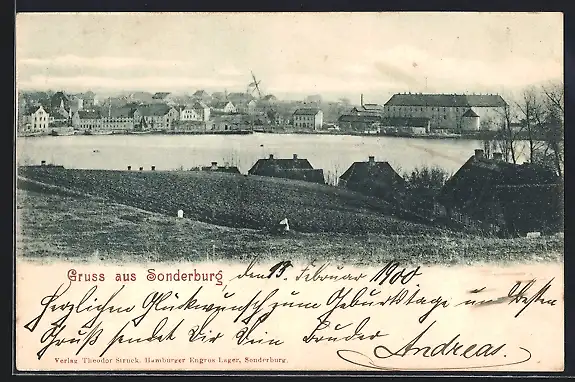 Gruss aus Sonderburg, den 13. Februar 1900
Herzlichen Glückwunsch zum Geburtstage und besten
Gruß sendet Dir Dein Bruder Andreas.
Verlag Theodor Struck, Hamburger Engros Lager, Sonderburg.